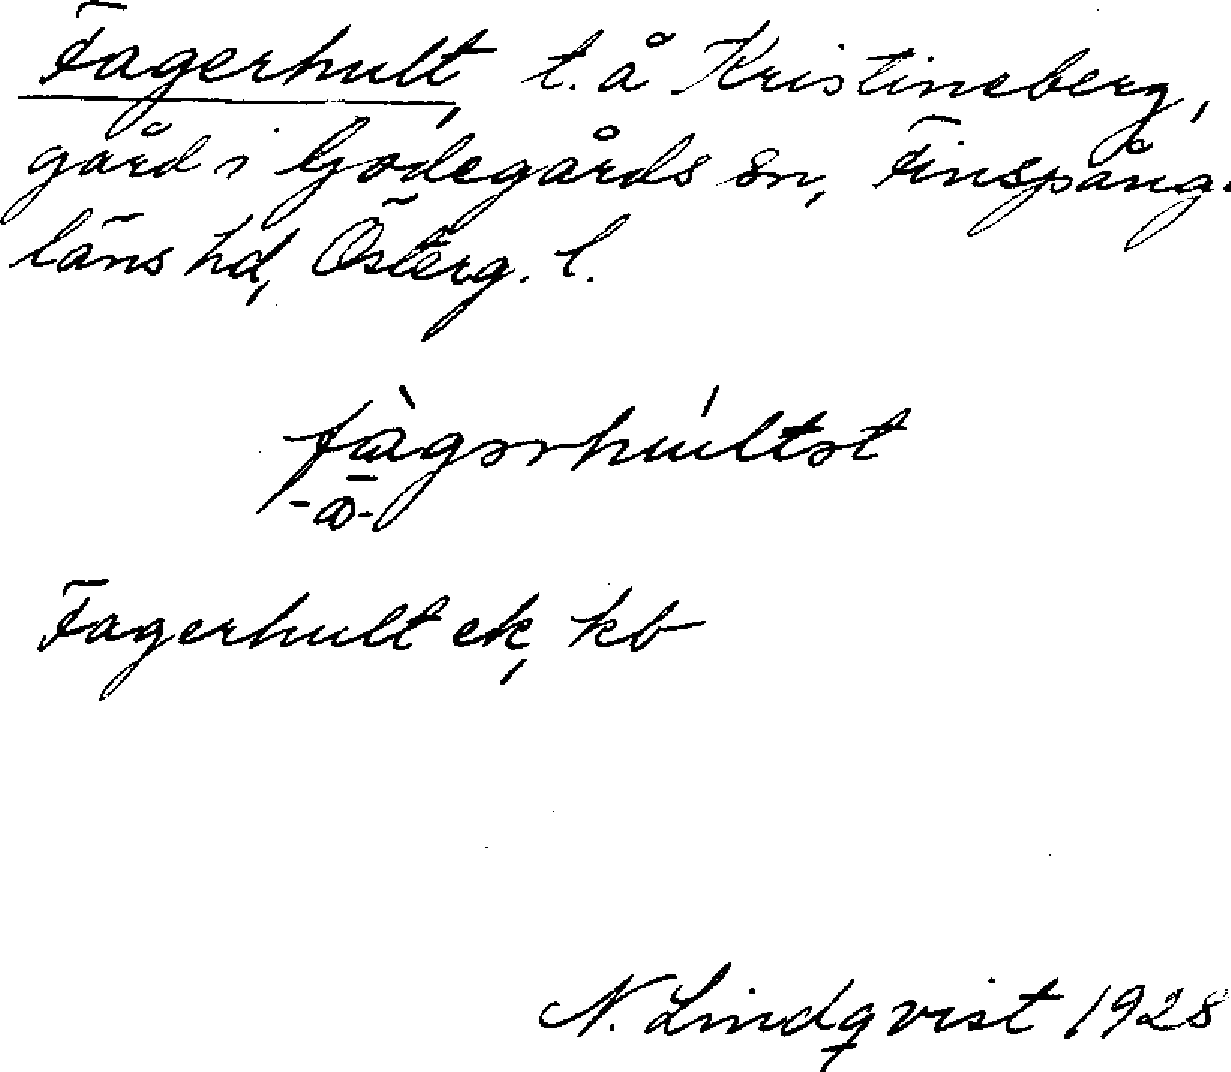 Fagerhult, t. å Kristineberg,
gård i Godegårds sn, Finspånga
läns hd, Österg. l.
fàgərhúltət
-ā-
Fagerhult ek, kb
N. Lindqvist 1928